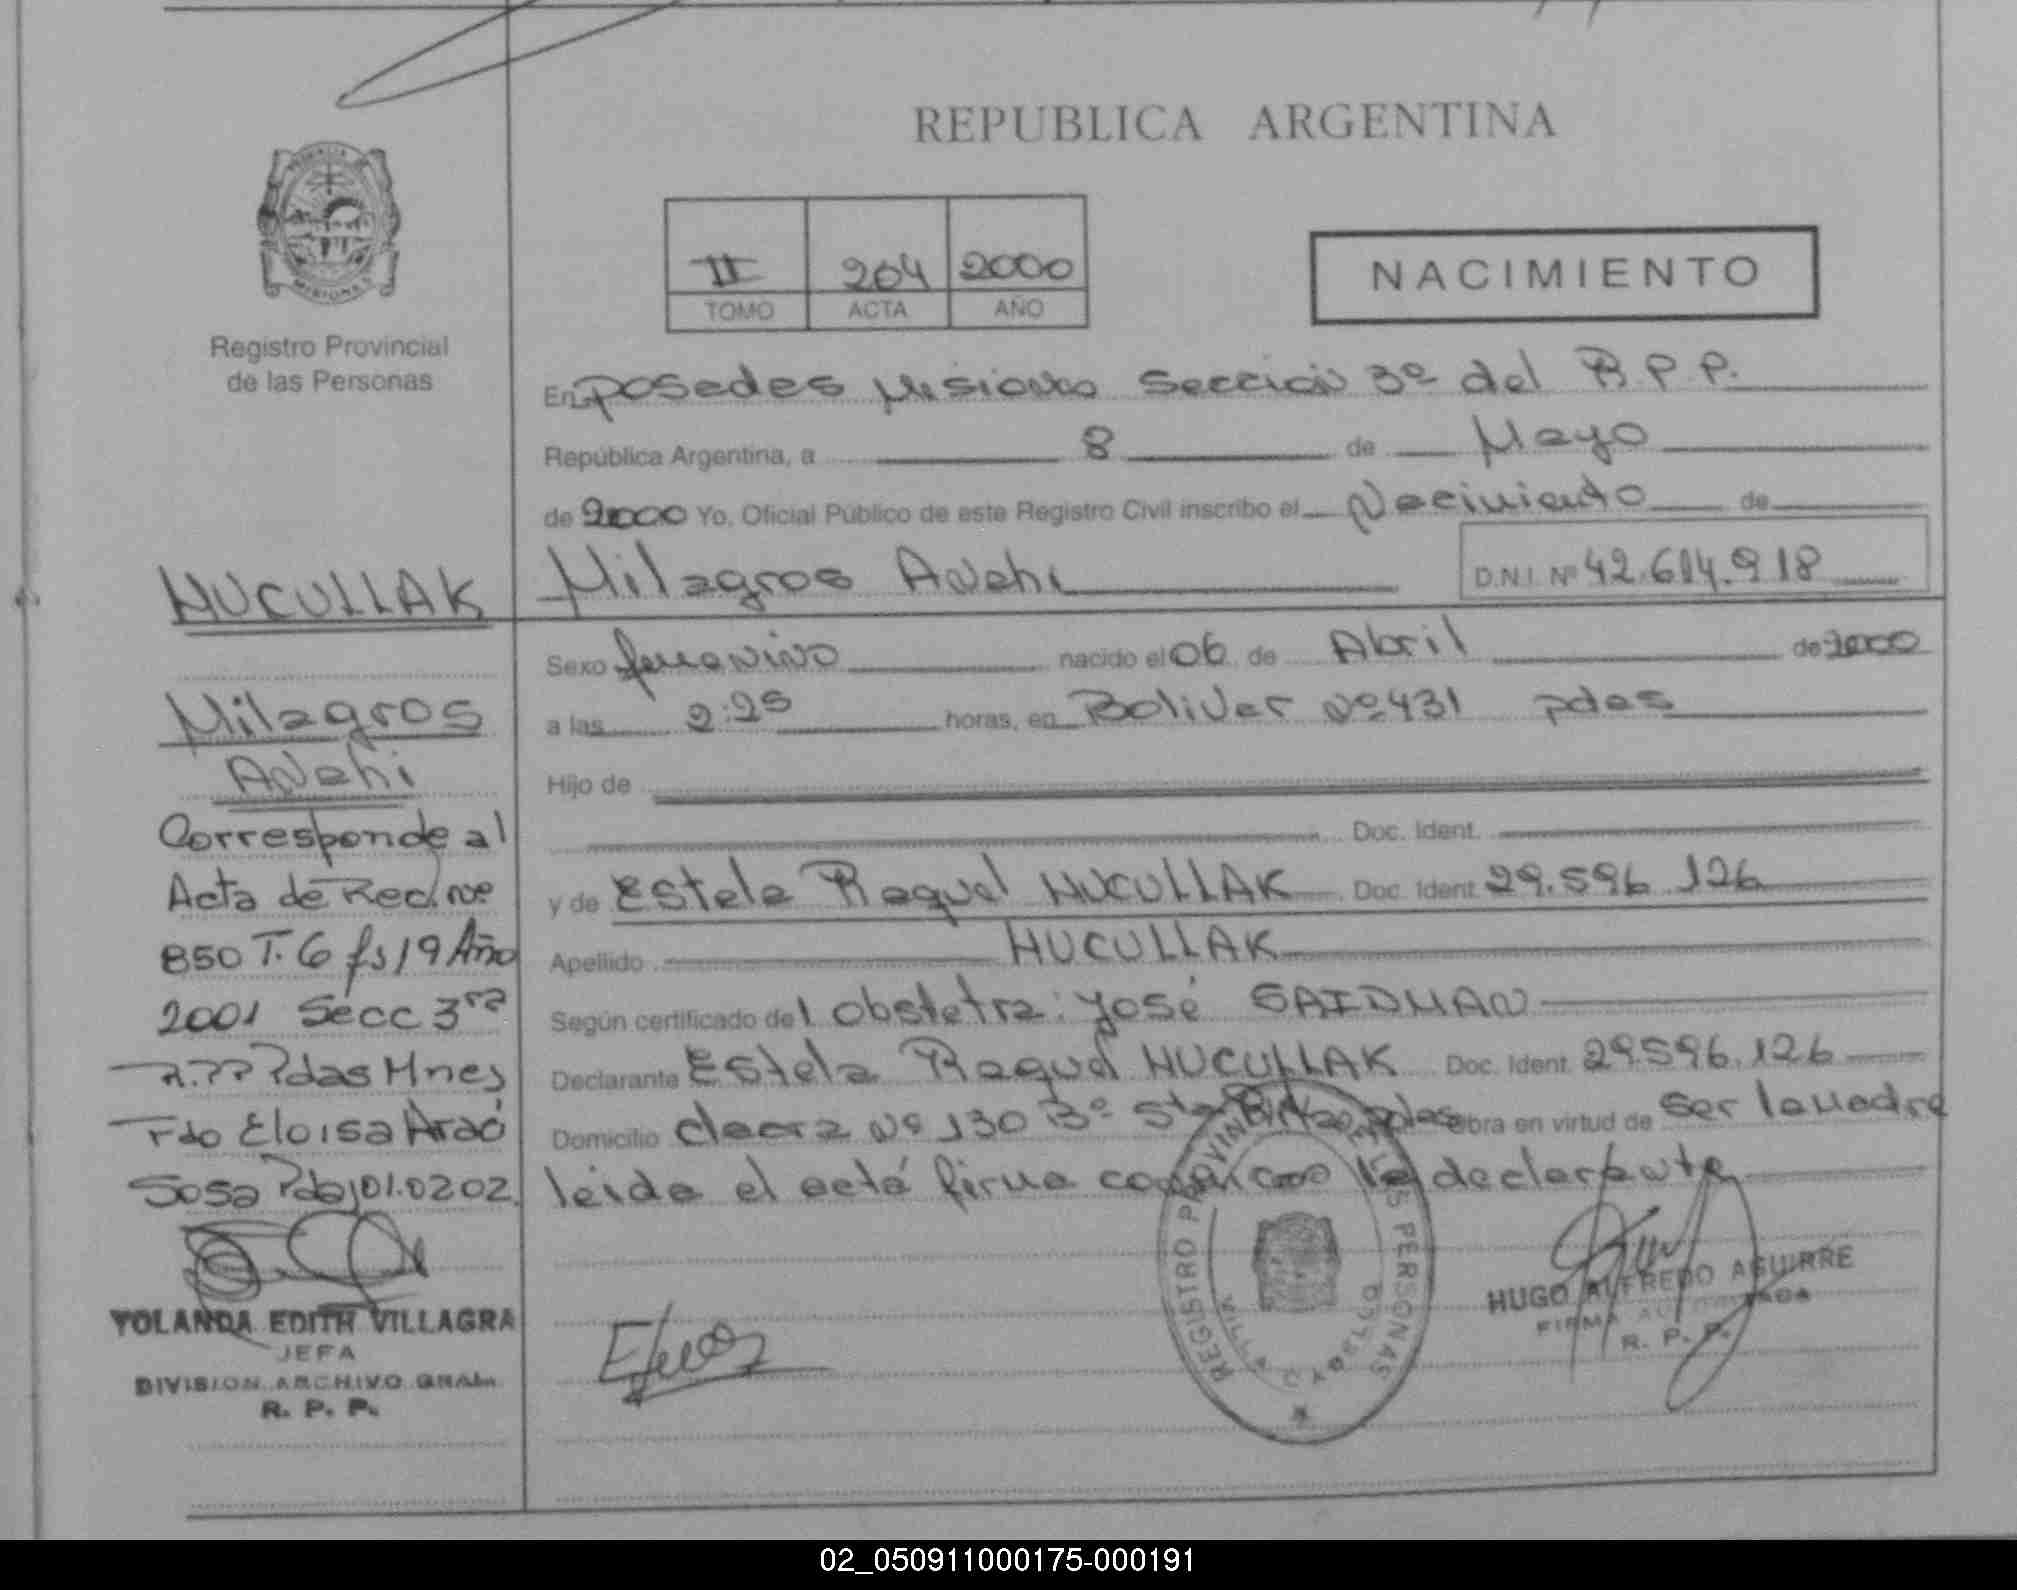 REPUBLICA ARGENTINA
II 204 2000
TOMO ACTA AÑO
NACIMIENTO
MISIONES
Registro Provincial
de las Personas
En posedes Misiones Sección 3º del R.P.P.
República Argentina, a 8 de Mayo
de 2000 Yo, Oficial Público de este Registro Civil inscribo el Nacimiento de
HUCULLAK
Milagros Anahi D.N.I. Nº 42.614.918
Sexo femenino nacido el 06 de Abril de 2000
a las 2:25 horas, en Bolivar Nº 431 pdas
Hijo de
Doc. Ident.
y de Estela Raquel HUCULLAK Doc. Ident. 29.596.126
Apellido HUCULLAK
Según certificado del Obstetra: José SAIDMAN
Declarante Estela Raquel HUCULLAK Doc. Ident. 29.596.126
Domicilio chacra Nº 130 Bº Sta Rita pdas obra en virtud de ser la madre
leida el acta firma conmigo la declarante
Milagros
Anahi
Corresponde al
Acta de Rec. nº
850 T. 6 fs 19 Año
2001 Secc 3ra
R.PP Pdas Mnes
Fdo Eloisa
Sosa Pdas 01.02 02.
YOLANDA EDITH VILLAGRA
JEFA
DIVISION ARCHIVO GRAL.
R. P. P.
REGISTRO PROVINCIAL DE LAS PERSONAS
VILLA CABELLO
HUGO ALFREDO AGUIRRE
FIRMA AUTORIZADA
R. P. P.
02_050911000175-000191